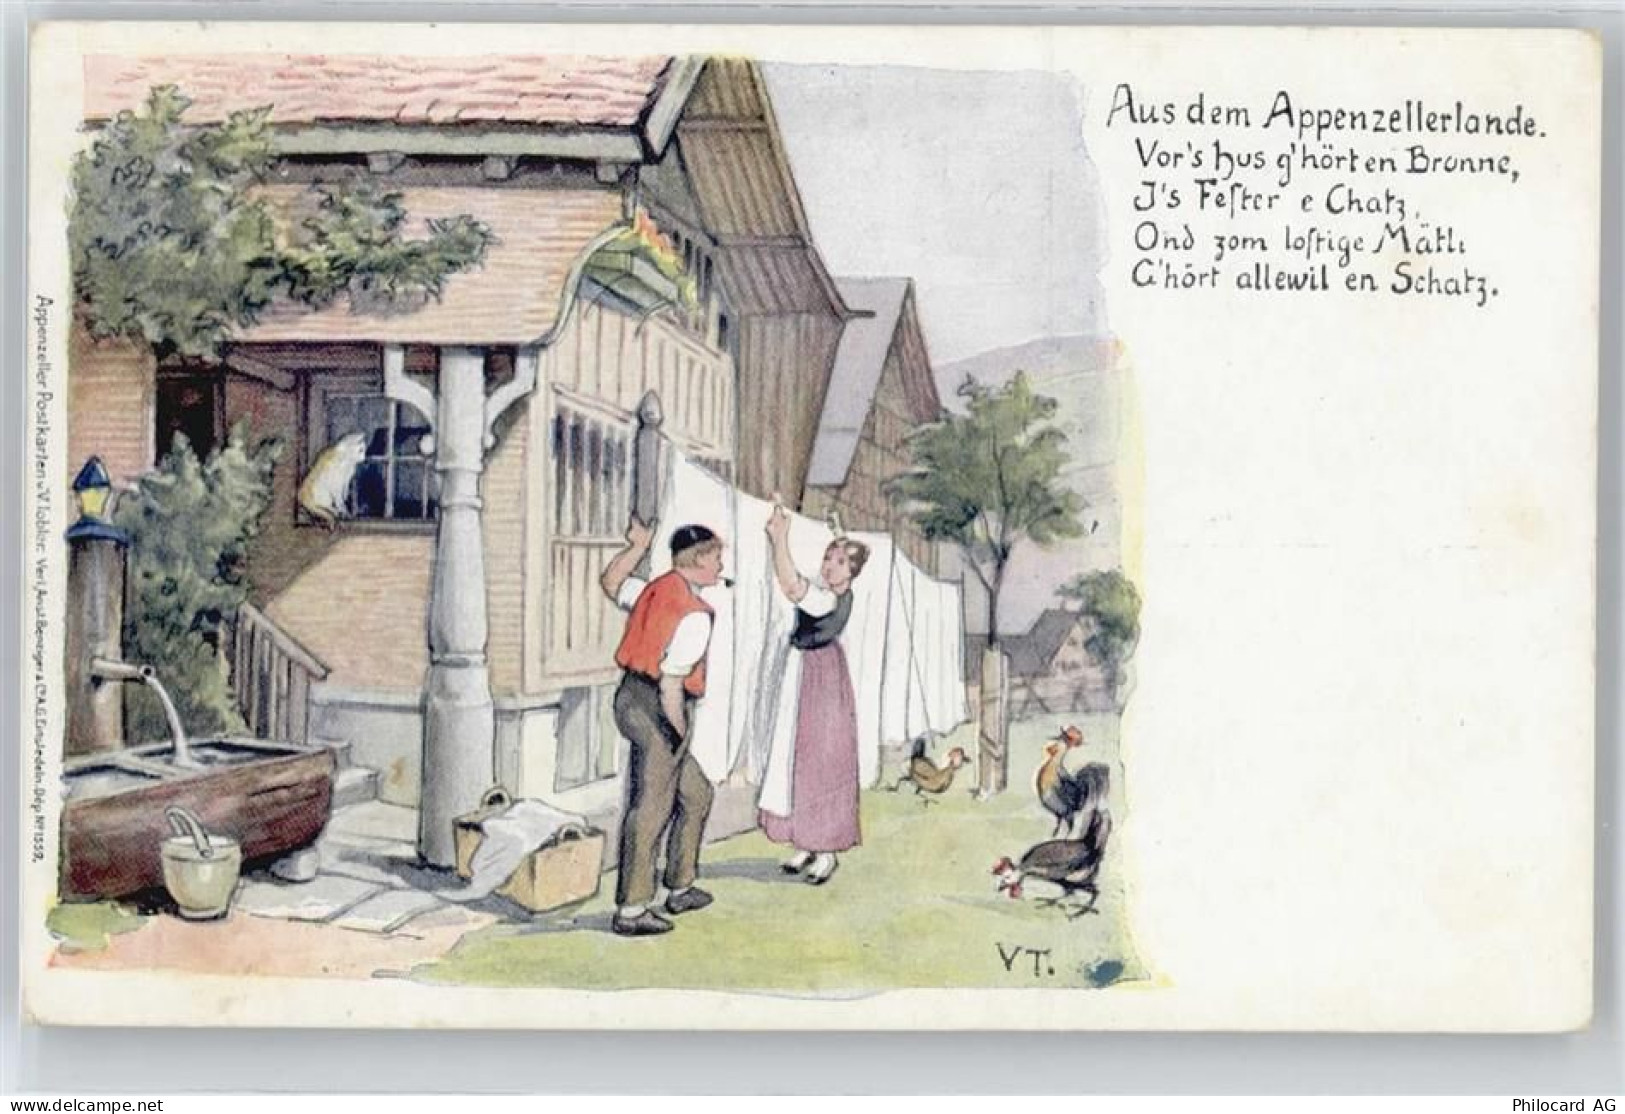 Aus dem Appenzellerlande.
Vor's Hus g'hört en Brunne,
I's Fester e Chatz,
Ond zom lostige Mätli
G'hört allewil en Schatz.
Appenzeller Postkarten v. V. Tobler. Verl. Anst. Benziger & Co. A.G. Einsiedeln. Dép. No 1559.
VT.
www.delcampe.net
philocard AG